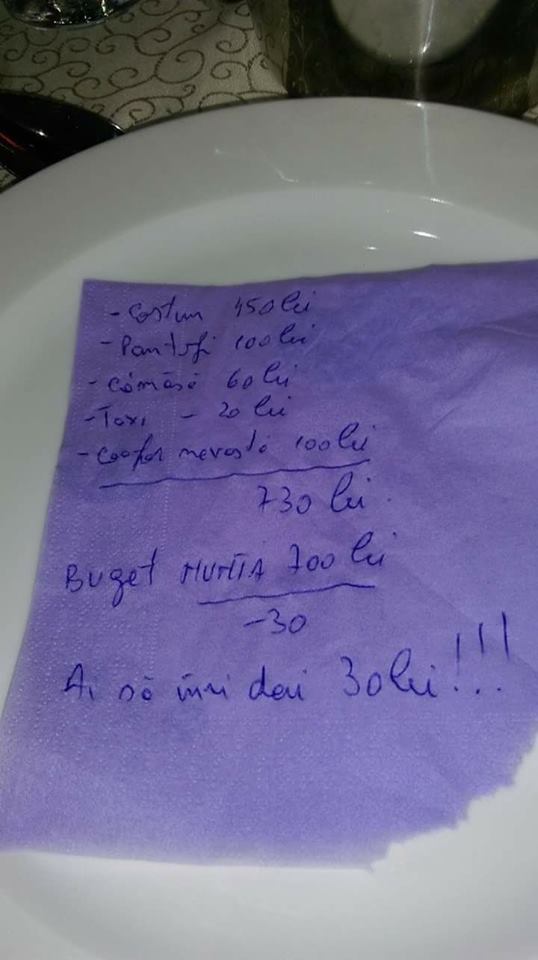 - Costum 450 lei
- Pantofi 100 lei
- Cămasă 60 lei
- Taxi - 20 lei
- Coafor nevastă 100 lei
730 lei
Buget NUNTA 700 lei
-30
Ai să îmi dai 30 lei!!!